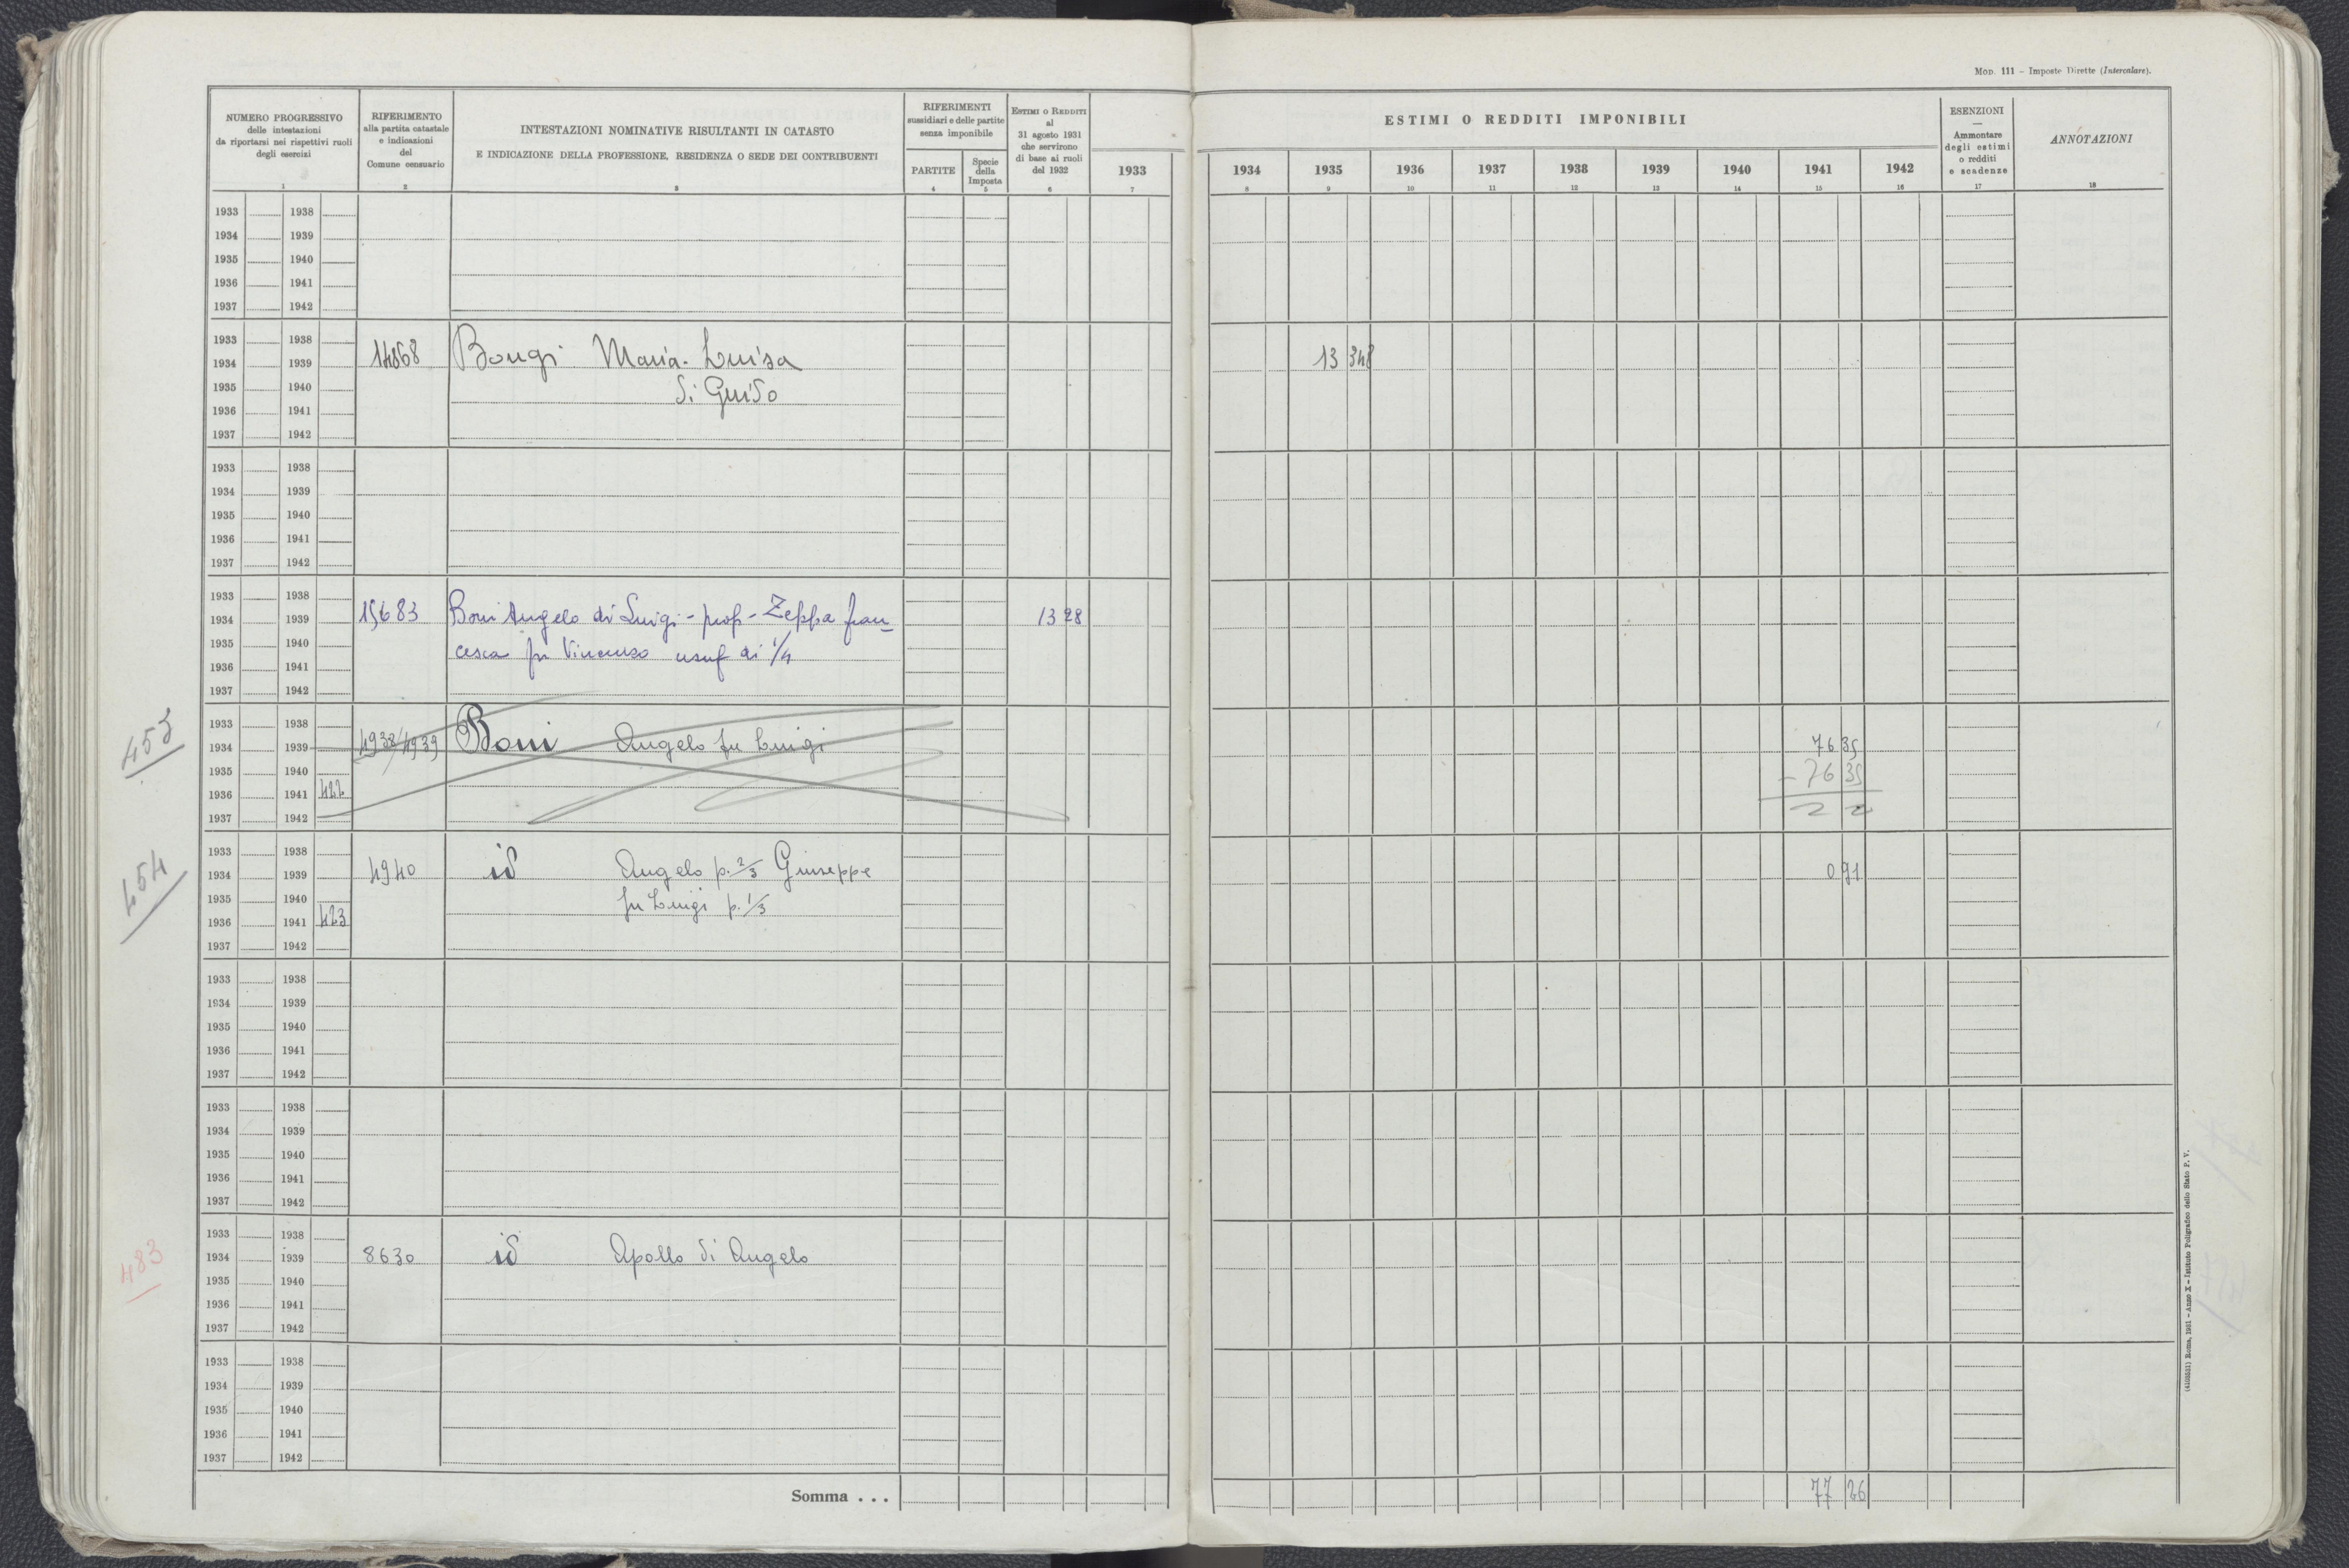 MOD. 111 – Imposte Dirette (Intercalare).
NUMERO PROGRESSIVO
delle intestazioni
da riportarsi nei rispettivi ruoli
degli esercizi
1
RIFERIMENTO
alla partita catastale
e indicazioni
del
Comune censuario
2
INTESTAZIONI NOMINATIVE RISULTANTI IN CATASTO
E INDICAZIONE DELLA PROFESSIONE, RESIDENZA O SEDE DEI CONTRIBUENTI
3
RIFERIMENTI
sussidiari e delle partite
senza imponibile
PARTITE
4
Specie
della
Imposta
5
ESTIMI O REDDITI
al
31 agosto 1931
che servirono
di base ai ruoli
del 1932
6
1933
7
ESTIMI O REDDITI IMPONIBILI
1934 1935 1936 1937 1938 1939 1940 1941 1942
8 9 10 11 12 13 14 15 16
ESENZIONI
—
Ammontare
degli estimi
o redditi
e scadenze
17
ANNOTAZIONI
18
1933 1938
1934 1939
1935 1940
1936 1941
1937 1942
1933 1938
1934 1939 14868 Bongi Maria-Luisa 13 348
1935 1940 di Guido
1936 1941
1937 1942
1933 1938
1934 1939
1935 1940
1936 1941
1937 1942
1933 1938
1934 1939 15683 Boni Angelo di Luigi - prop - Zeppa fran- 13 28
1935 1940 cesca fu Vincenzo usuf di 1/4
1936 1941
1937 1942
453
1933 1938
1934 1939 4938/4939 Boni Angelo fu Luigi 76 35
1935 1940 - 76 35
1936 1941 422
1937 1942
454
1933 1938
1934 1939 4940 id Angelo p. 2/3 Giuseppe 0 91
1935 1940 fu Luigi p. 1/3
1936 1941 423
1937 1942
1933 1938
1934 1939
1935 1940
1936 1941
1937 1942
1933 1938
1934 1939
1935 1940
1936 1941
1937 1942
483
1933 1938
1934 1939 8630 id Apollo di Angelo
1935 1940
1936 1941
1937 1942
1933 1938
1934 1939
1935 1940
1936 1941
1937 1942
Somma . . . 77 26
Roma, 1931 - Anno X - Istituto Poligrafico dello Stato P. V.